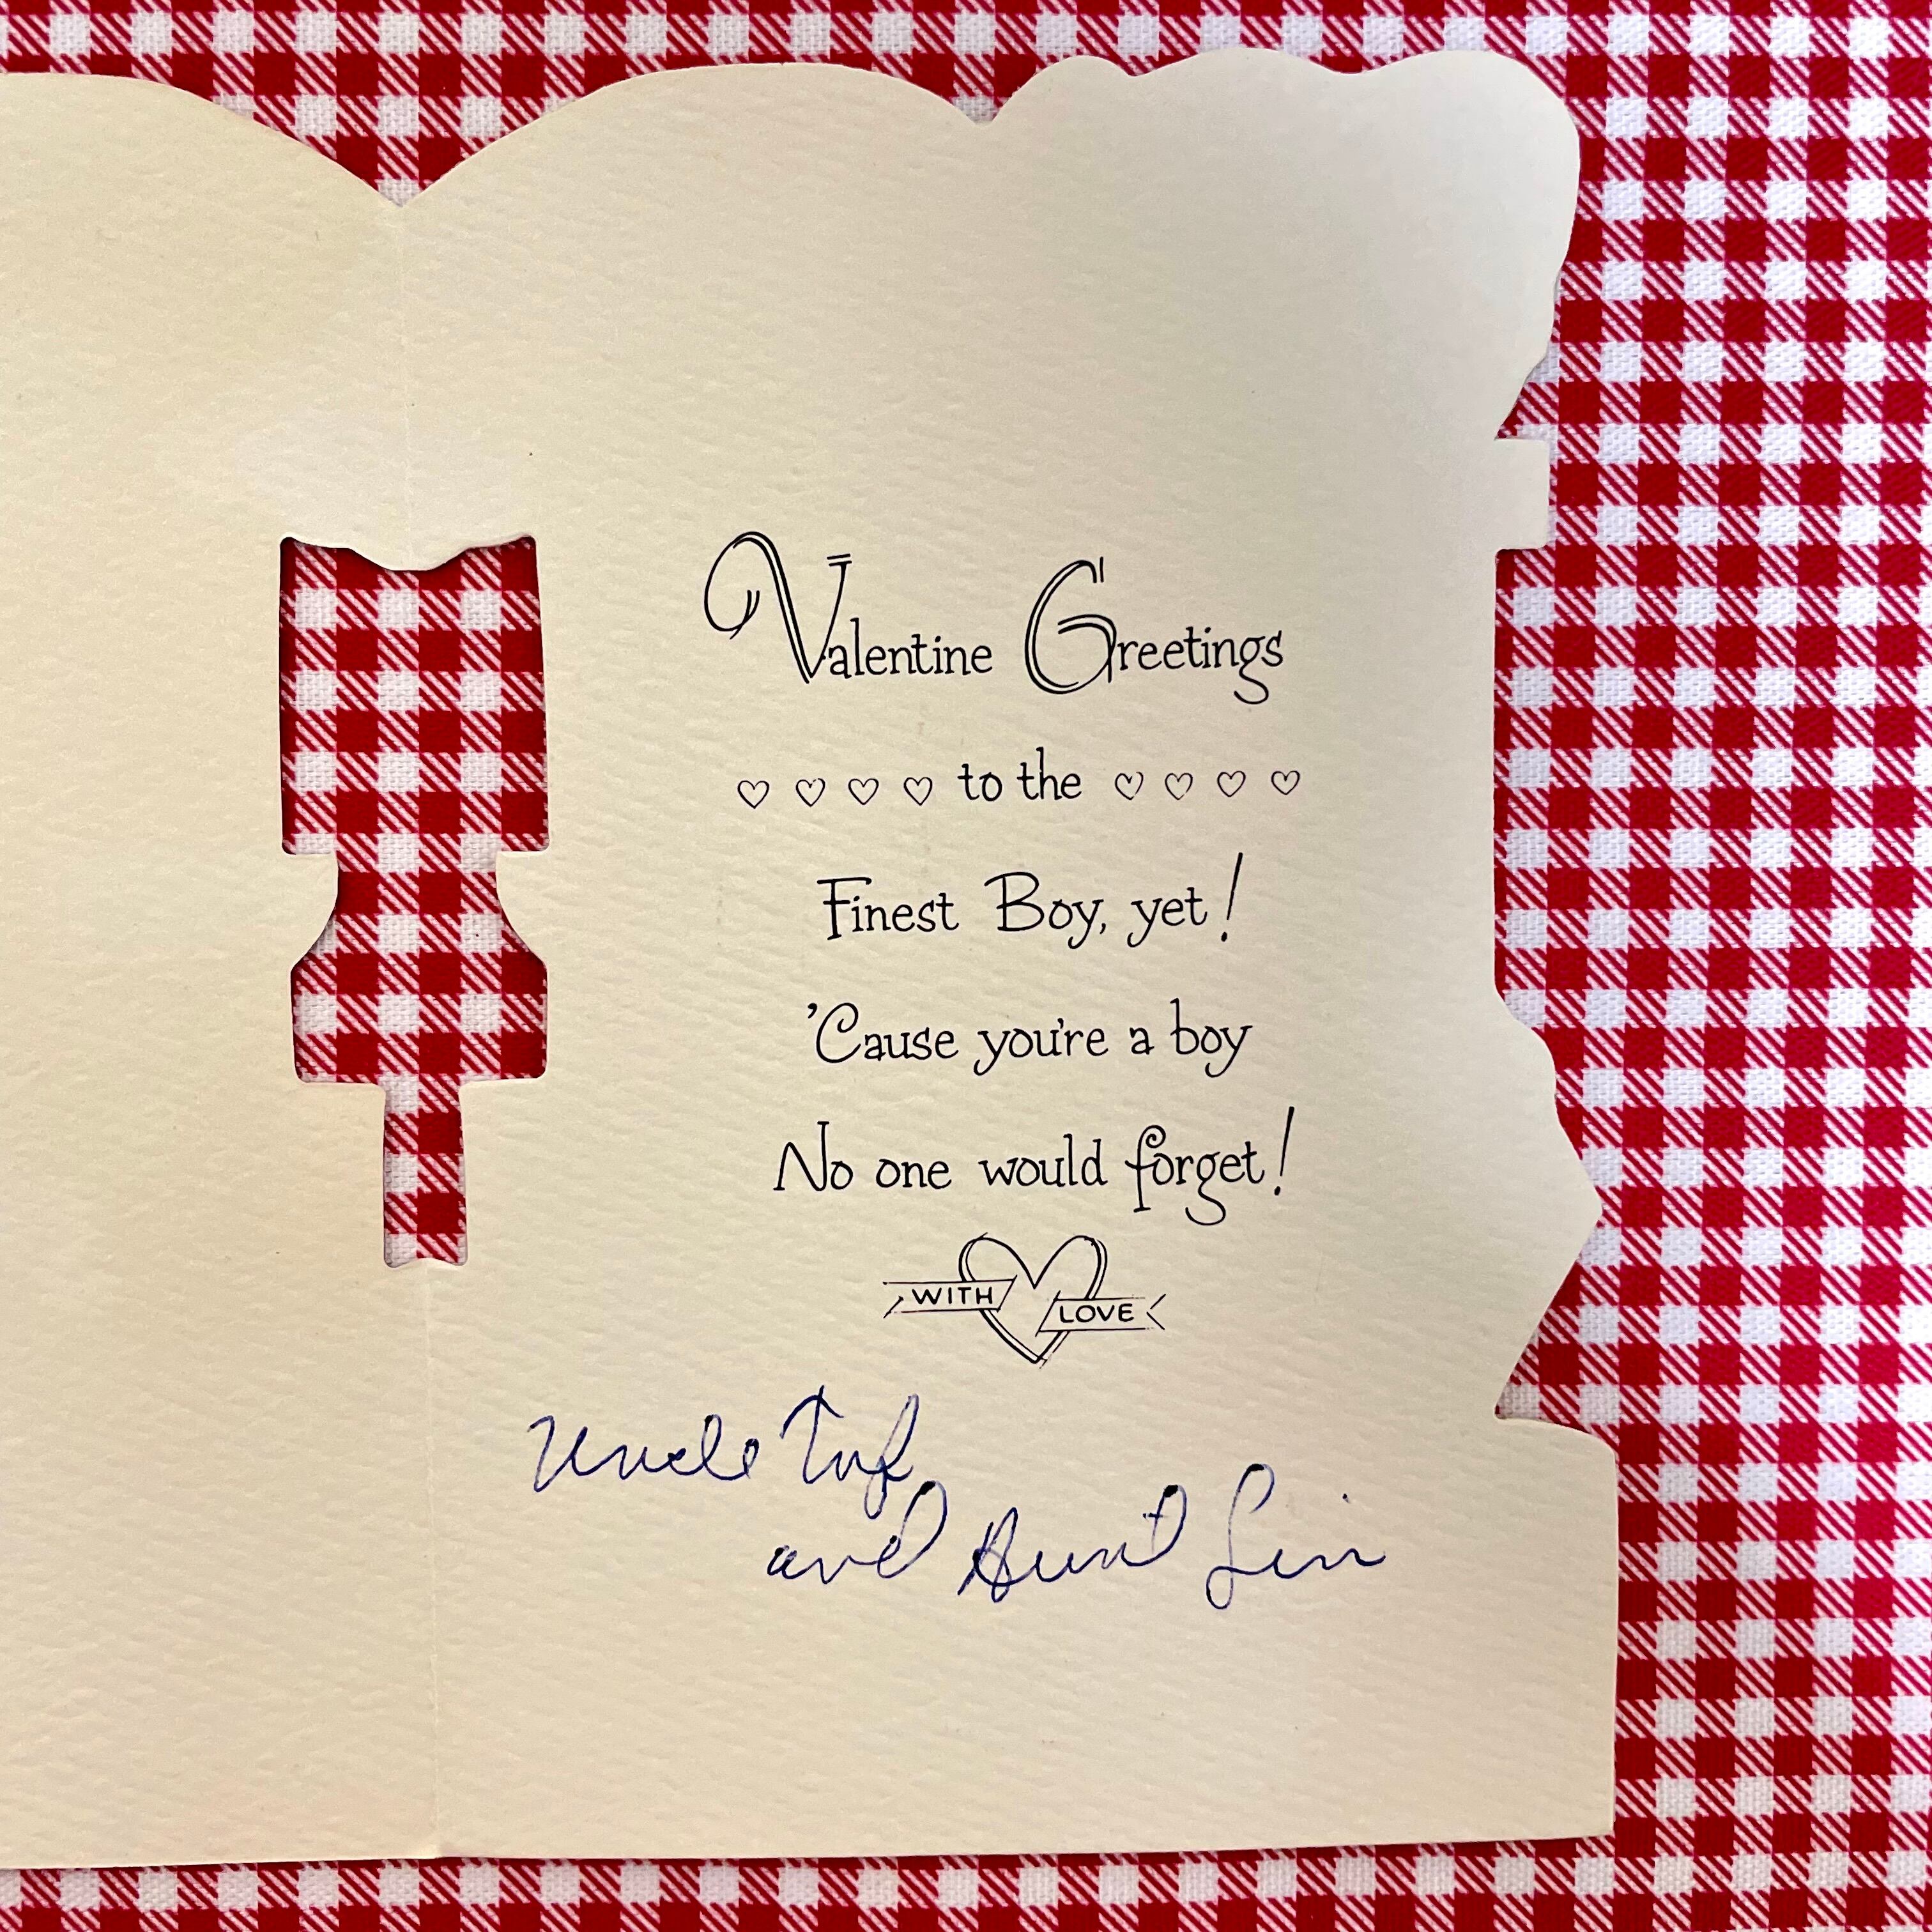 Valentine Greetings
♡ ♡ ♡ ♡ to the ♡ ♡ ♡ ♡
Finest Boy, yet!
'Cause you're a boy
No one would forget!
WITH LOVE
Uncle
and Aunt